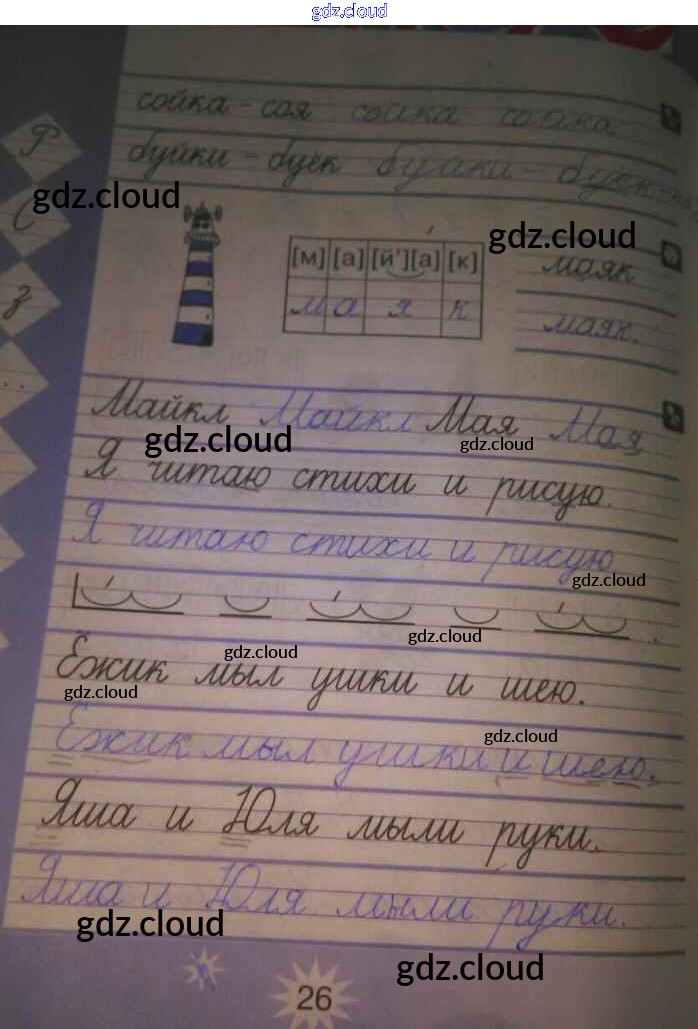 gdz.cloud
сойка – соя сойка сойка
Р буйки – буёк буйки – буёк
gdz.cloud
С gdz.cloud
[м] [а] [й'][а] [к] маяк
З м а я к маяк.
Майкл Майкл Мая Мая
gdz.cloud gdz.cloud
Я читаю стихи и рисую.
Я читаю стихи и рисую
gdz.cloud
gdz.cloud
gdz.cloud
Ёжик мыл ушки и шею.
gdz.cloud
gdz.cloud
Ёжик мыл ушки и шею.
Яша и Юля мыли руки.
Яша и Юля мыли руки.
gdz.cloud
gdz.cloud
26